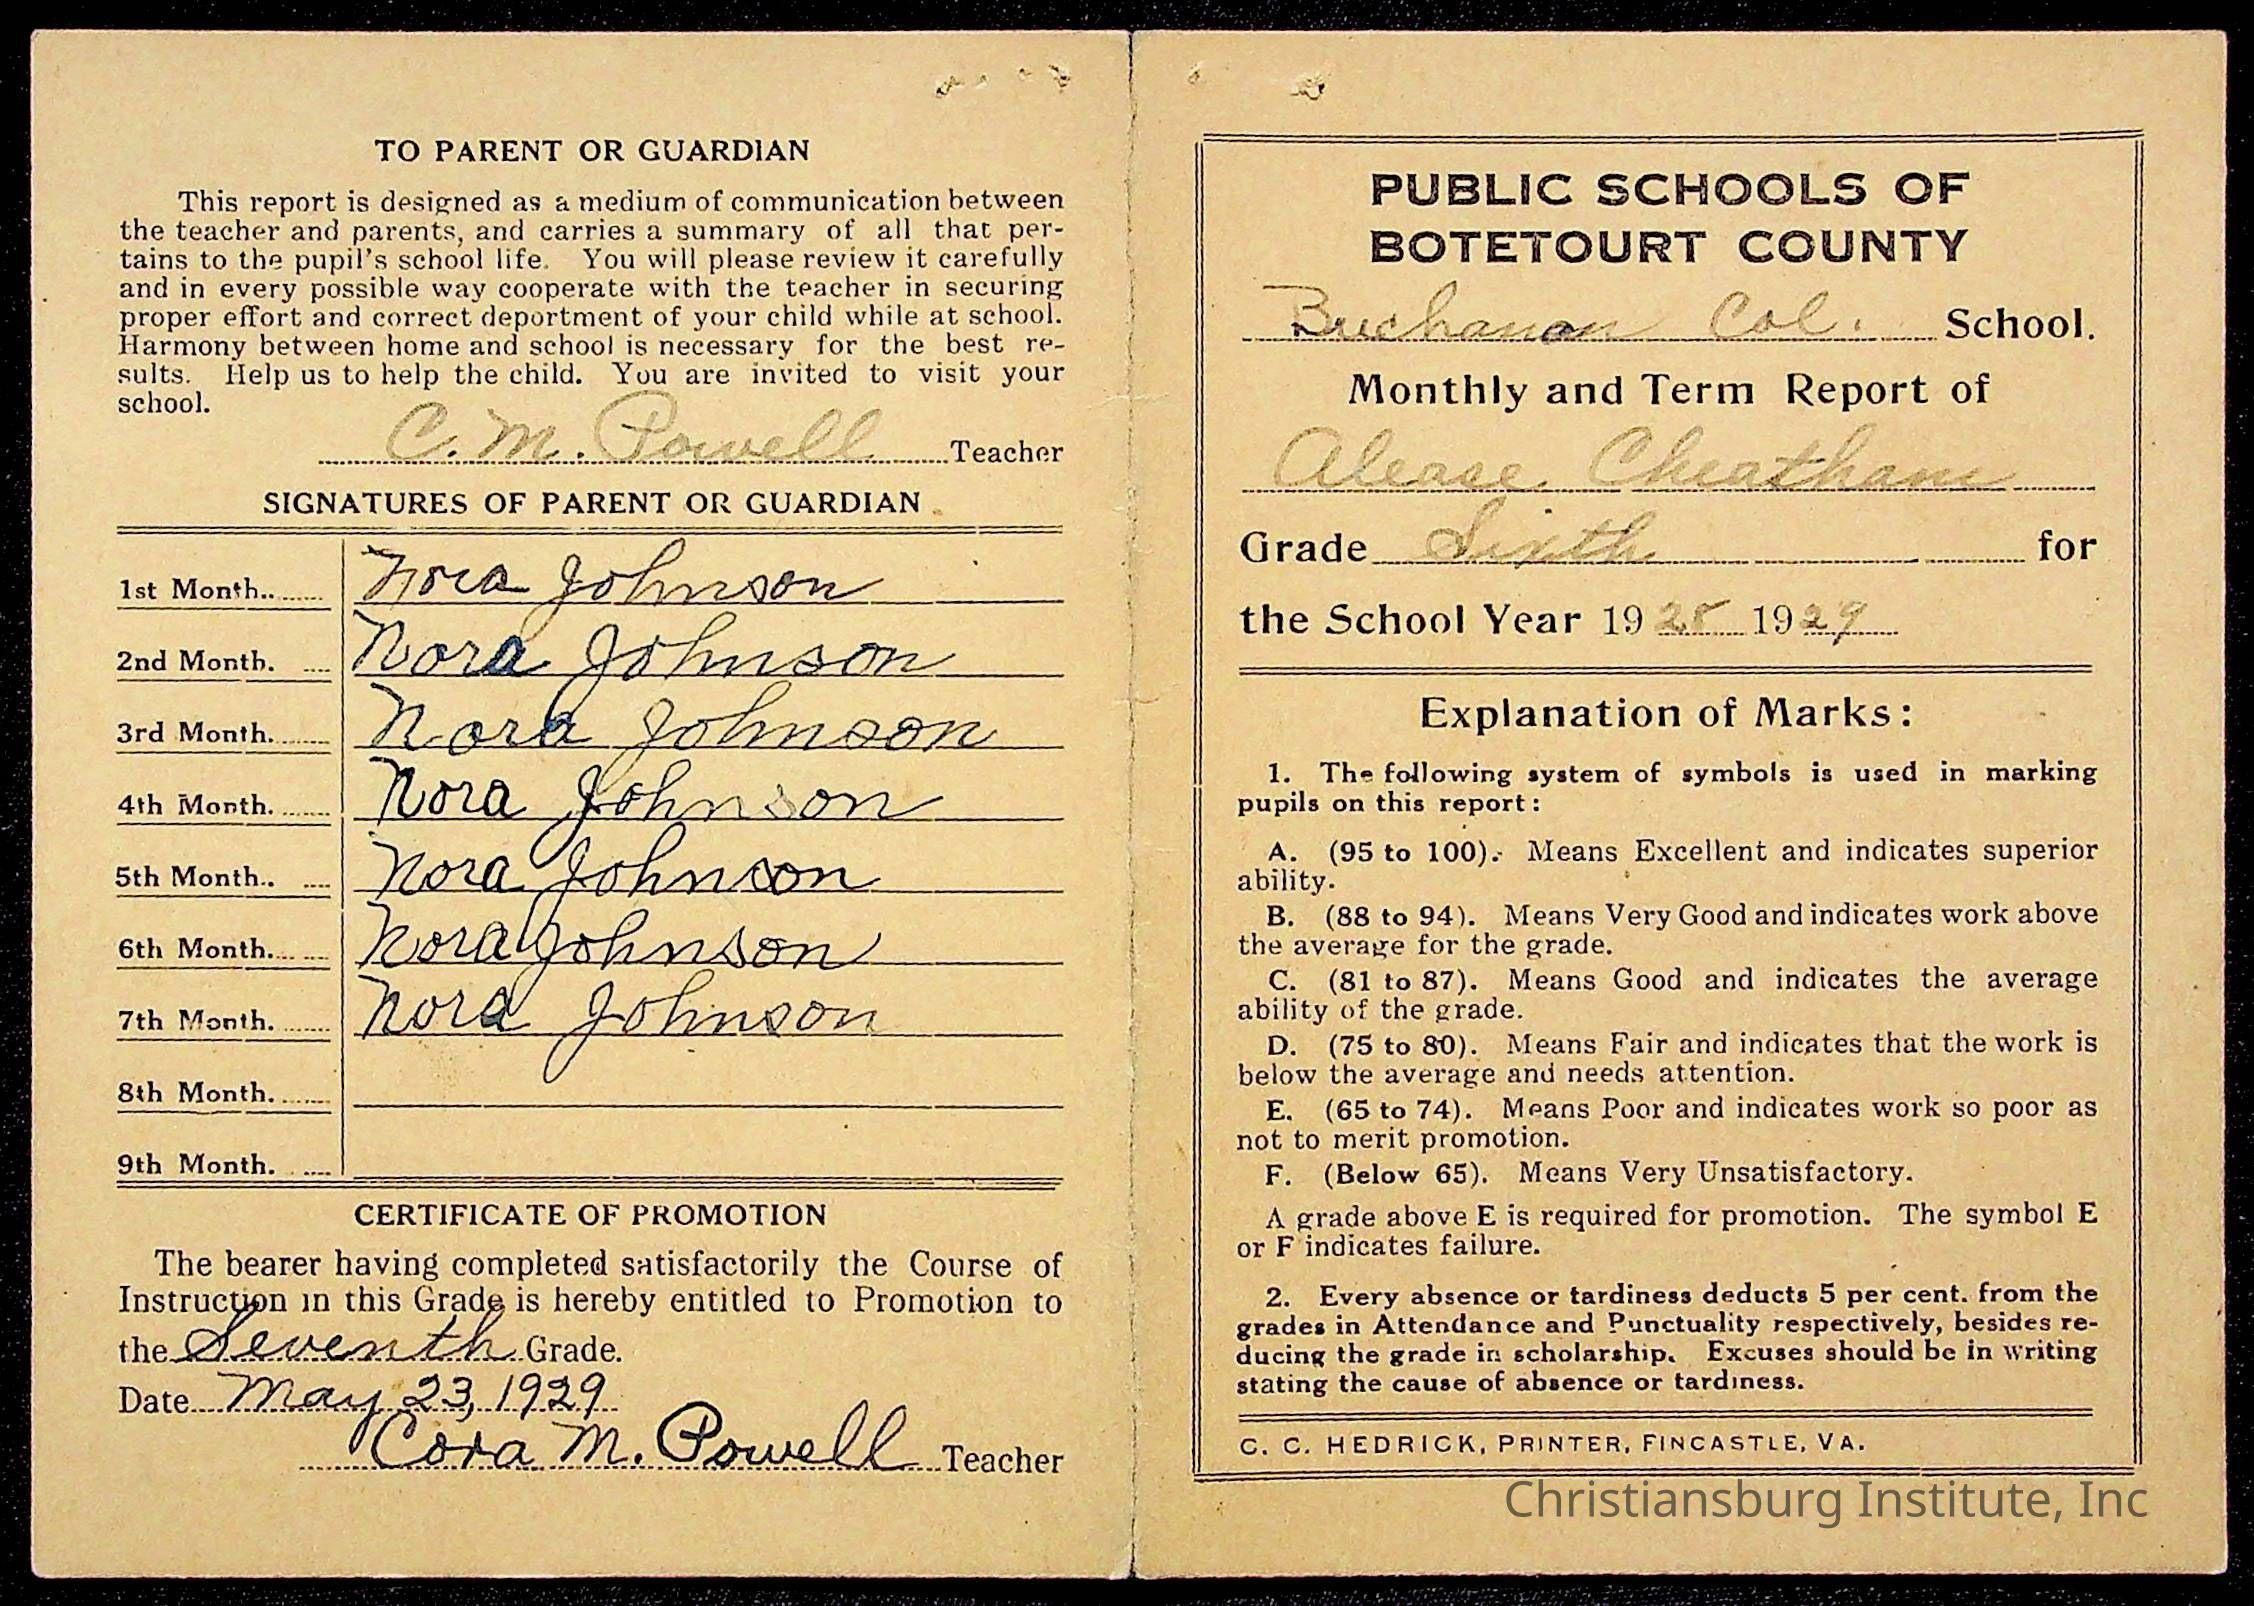 TO PARENT OR GUARDIAN
This report is designed as a medium of communication between
the teacher and parents, and carries a summary of all that per-
tains to the pupil's school life. You will please review it carefully
and in every possible way cooperate with the teacher in securing
proper effort and correct deportment of your child while at school.
Harmony between home and school is necessary for the best re-
sults. Help us to help the child. You are invited to visit your
school.
C. M. Powell Teacher
SIGNATURES OF PARENT OR GUARDIAN
1st Month. Nora Johnson
2nd Month. Nora Johnson
3rd Month. Nora Johnson
4th Month. Nora Johnson
5th Month. Nora Johnson
6th Month. Nora Johnson
7th Month. Nora Johnson
8th Month.
9th Month.
CERTIFICATE OF PROMOTION
The bearer having completed satisfactorily the Course of
Instruction in this Grade is hereby entitled to Promotion to
the Seventh Grade.
Date May 23, 1929
Cora M. Powell Teacher
PUBLIC SCHOOLS OF
BOTETOURT COUNTY
Buchanan Col. School.
Monthly and Term Report of
Alease Cheatham
Grade Sixth for
the School Year 1928 1929
Explanation of Marks:
1. The following system of symbols is used in marking
pupils on this report:
A. (95 to 100). Means Excellent and indicates superior
ability.
B. (88 to 94). Means Very Good and indicates work above
the average for the grade.
C. (81 to 87). Means Good and indicates the average
ability of the grade.
D. (75 to 80). Means Fair and indicates that the work is
below the average and needs attention.
E. (65 to 74). Means Poor and indicates work so poor as
not to merit promotion.
F. (Below 65). Means Very Unsatisfactory.
A grade above E is required for promotion. The symbol E
or F indicates failure.
2. Every absence or tardiness deducts 5 per cent. from the
grades in Attendance and Punctuality respectively, besides re-
ducing the grade in scholarship. Excuses should be in writing
stating the cause of absence or tardiness.
C. C. HEDRICK, PRINTER, FINCASTLE, VA.
Christiansburg Institute, Inc